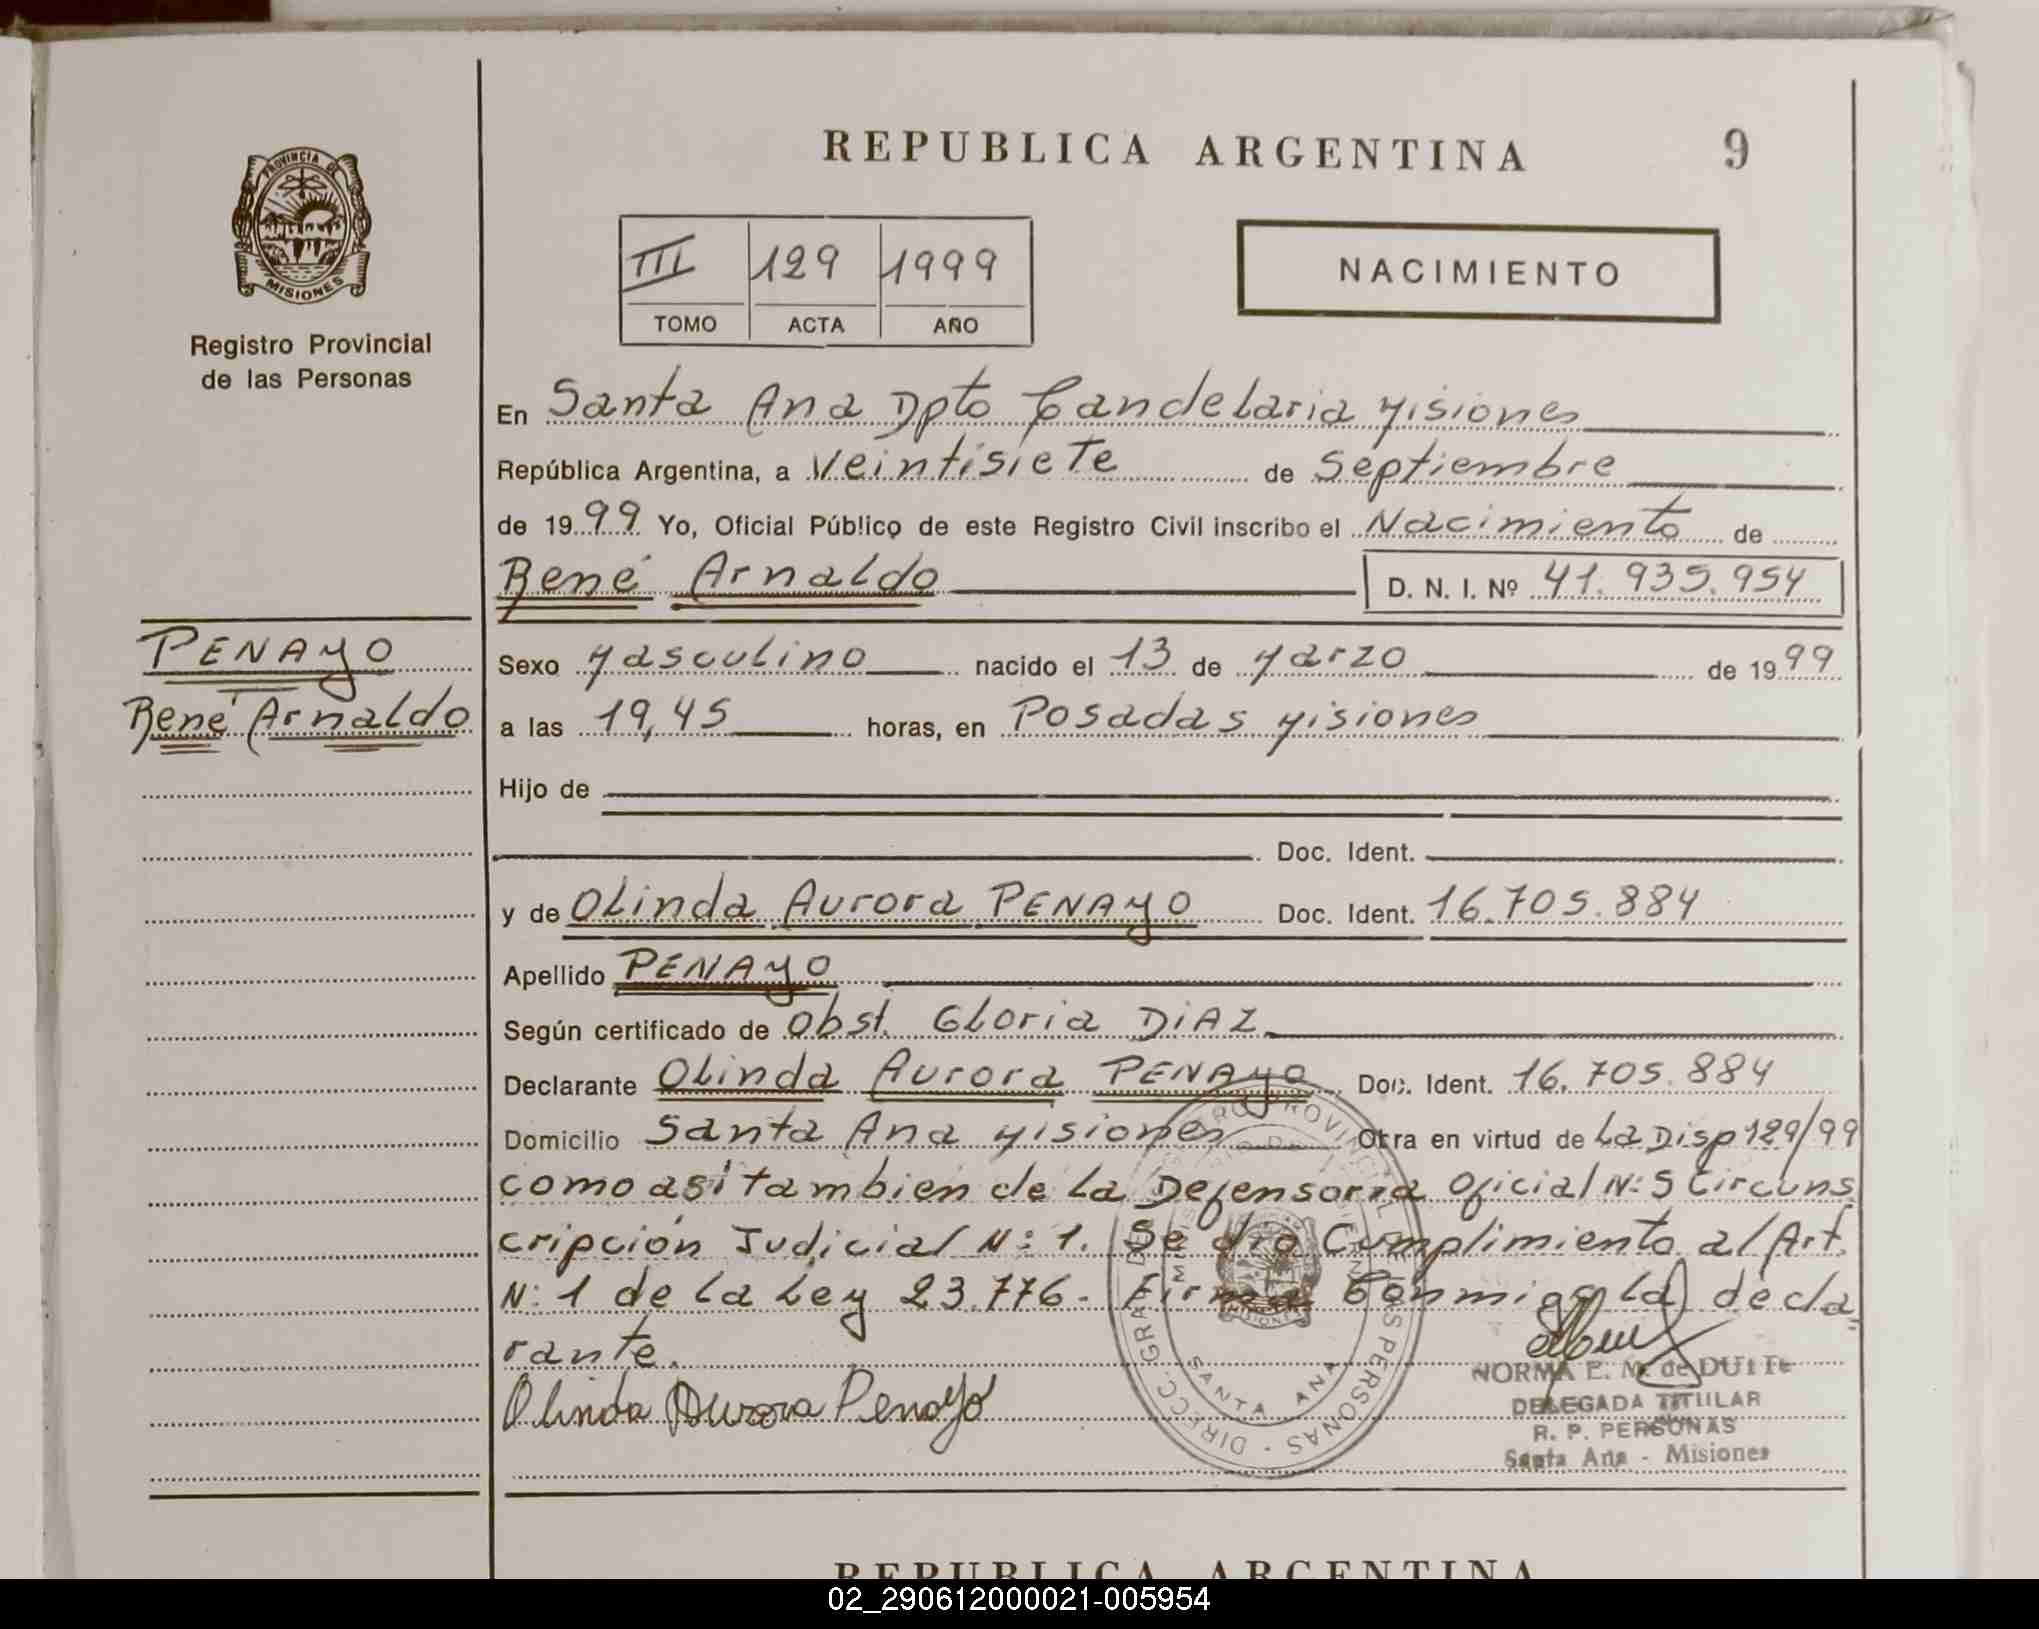 REPUBLICA ARGENTINA 9
PROVINCIA DE
MISIONES
Registro Provincial
de las Personas
III 129 1999
TOMO ACTA AÑO
NACIMIENTO
En Santa Ana Dpto Candelaria Misiones
República Argentina, a Veintisiete de Septiembre
de 1999 Yo, Oficial Público de este Registro Civil inscribo el Nacimiento de
René Arnaldo D. N. I. Nº 41.935.954
PENAYO
René Arnaldo
Sexo Masculino nacido el 13 de Marzo de 1999
a las 19,45 horas, en Posadas Misiones
Hijo de
Doc. Ident.
y de Olinda Aurora PENAYO Doc. Ident. 16.705.884
Apellido PENAYO
Según certificado de Obst. Gloria DIAZ
Declarante Olinda Aurora PENAYO Doc. Ident. 16.705.884
Domicilio Santa Ana Misiones Obra en virtud de La Disp 129/99
como asi tambien de la Defensoria Oficial N: 5 Circuns
cripción Judicial N: 1. Se dio Cumplimiento al Art.
N: 1 de la Ley 23.776. Firma Conmigo la decla
rante.
Olinda Aurora Penayo
NORMA E. M. de DUTTE
DELEGADA TITULAR
R. P. PERSONAS
Santa Ana - Misiones
DIRECC. GRAL. DEL REGISTRO PROVINCIAL DE LAS PERSONAS
SANTA ANA
MISIONES
REPUBLICA ARGENTINA
02_290612000021-005954